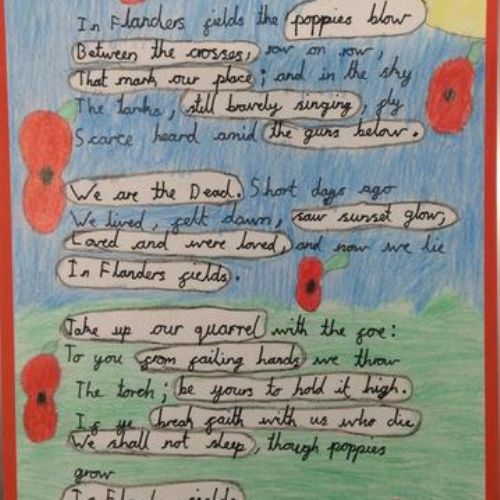 In Flanders fields the poppies blow
Between the crosses, row on row,
That mark our place; and in the sky
The larks, still bravely singing, fly
Scarce heard amid the guns below.
We are the Dead. Short days ago
We lived, felt dawn, saw sunset glow,
Loved and were loved, and now we lie
In Flanders fields.
Take up our quarrel with the foe:
To you from failing hands we throw
The torch; be yours to hold it high.
If ye break faith with us who die
We shall not sleep, though poppies
grow
In Flanders fields